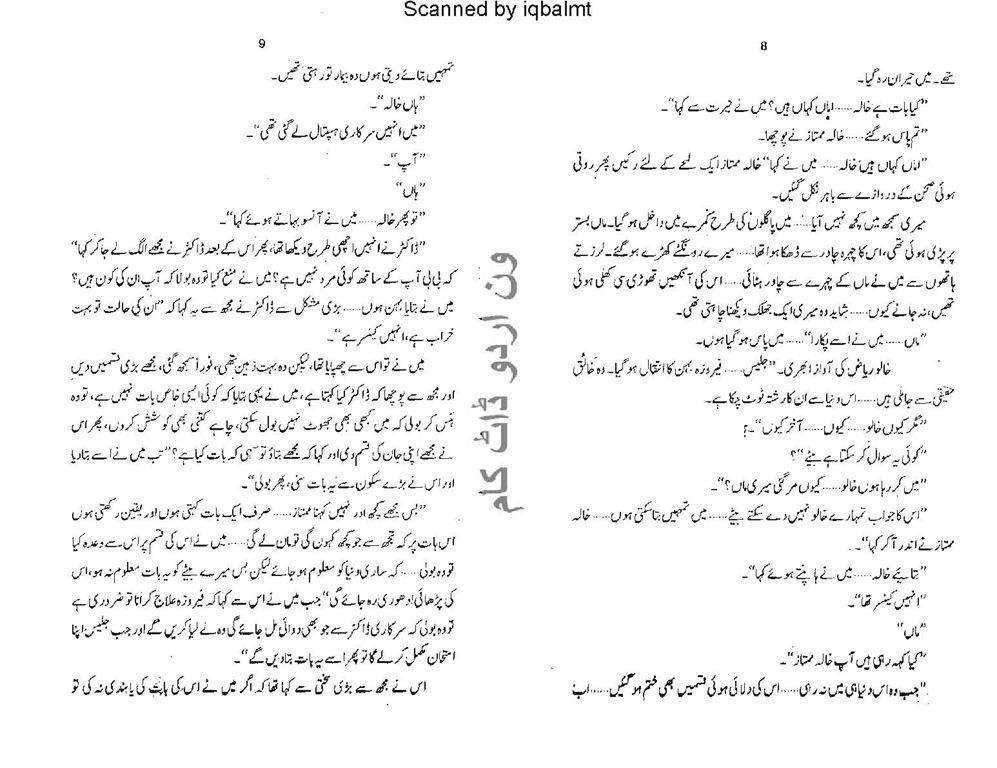 Scanned by iqbalmt
8
تھے۔ میں حیران رہ گیا۔
”کیا بات ہے خالہ...... اماں کہاں ہیں؟ میں نے حیرت سے کہا“۔
”تم پاس ہو گئے...... خالہ ممتاز نے پوچھا۔
”اماں کہاں ہیں خالہ...... میں نے کہا“ خالہ ممتاز ایک لمحے کے لئے رکیں پھر روتی
ہوئی صحن کے دروازے سے باہر نکل گئیں۔
میری سمجھ میں کچھ نہیں آیا...... میں پاگلوں کی طرح کمرے میں داخل ہو گیا۔ ماں بستر
پر پڑی ہوئی تھی، اس کا چہرہ چادر سے ڈھکا ہوا تھا...... میرے رونگٹے کھڑے ہو گئے۔ لرزتے
ہاتھوں سے میں نے ماں کے چہرے سے چادر ہٹائی...... اس کی آنکھیں تھوڑی سی کھلی ہوئی
تھیں، نہ جانے کیوں...... شاید وہ میری ایک جھلک دیکھنا چاہتی تھی۔
”ماں...... میں نے اسے پکارا“...... میں پاس ہو گیا ہوں۔
خالو ریاض کی آواز ابھری۔ ”جلیس...... فیروزہ بہن کا انتقال ہو گیا۔ وہ خالق
حقیقی سے جا ملی ہیں...... اس دنیا سے ان کا رشتہ ٹوٹ چکا ہے۔
”مگر کیوں خالو...... کیوں...... آخر کیوں“۔؟
”کوئی یہ سوال کر سکتا ہے بیٹے“؟
”میں کر رہا ہوں خالو...... کیوں مر گئی میری ماں؟“۔
”اس کا جواب تمہارے خالو نہیں دے سکتے بیٹے...... میں تمہیں بتا سکتی ہوں...... خالہ
ممتاز نے اندر آ کر کہا“۔
”بتایئے خالہ...... میں نے ہانپتے ہوئے کہا“۔
”انہیں کینسر تھا“۔
”ماں“
”کیا کہہ رہی ہیں آپ خالہ ممتاز“۔
”جب وہ اس دنیا ہی میں نہ رہی...... اس کی دلائی ہوئی قسمیں بھی ختم ہو گئیں...... اب
9
تمہیں بتائے دیتی ہوں وہ بیمار تو رہتی تھیں۔
”ہاں خالہ“۔
”میں انہیں سرکاری ہسپتال لے گئی تھی“۔
”آپ“۔
”ہاں“
”تو پھر خالہ...... میں نے آنسو بہاتے ہوئے کہا“۔
”ڈاکٹر نے انہیں اچھی طرح دیکھا تھا، پھر اس کے بعد ڈاکٹر نے مجھے الگ لے جا کر کہا“
کہ بی بی آپ کے ساتھ کوئی مرد نہیں ہے؟ میں نے منع کیا تو وہ بولا کہ آپ ان کی کون ہیں؟
میں نے بتایا بہن ہوں...... بڑی مشکل سے ڈاکٹر نے مجھ سے یہ کہا کہ ”ان کی حالت تو بہت
خراب ہے، انہیں کینسر ہے“۔
میں نے تو اس سے چھپایا تھا، لیکن وہ بہت ذہین تھی، فوراً سمجھ گئی، مجھے بڑی قسمیں دیں
اور مجھ سے پوچھا کہ ڈاکٹر کیا کہتا ہے، میں نے یہی بتایا کہ کوئی ایسی خاص بات نہیں ہے، تو وہ
ہنس کر بولی کہ میں کبھی بھی جھوٹ نہیں بول سکتی، چاہے کتنی بھی کوشش کروں، پھر اس
نے مجھے اپنی جان کی قسم دی اور کہا کہ مجھے بتاؤ تو سہی کہ بات کیا ہے؟“ تب میں نے اسے بتا دیا
اور اس نے بڑے سکون سے یہ بات سنی، پھر بولی“۔
”بس مجھے کچھ اور نہیں کہنا ممتاز...... صرف ایک بات کہتی ہوں اور یقین رکھتی ہوں
اس بات پر کہ تجھ سے جو کچھ کہوں گی تو مان لے گی...... میں نے اس کی قسم پر اس سے وعدہ کیا
تو وہ بولی...... کہ ساری دنیا کو معلوم ہو جائے لیکن بس میرے بیٹے کو یہ بات معلوم نہ ہو، اس
کی پڑھائی ادھوری رہ جائے گی“ جب میں نے اس سے کہا کہ فیروزہ علاج کرانا تو ضروری ہے
تو وہ بولی کہ سرکاری ڈاکٹر سے جو بھی دوائی مل جائے گی وہ لے لیا کریں گے اور جب جلیس اپنا
امتحان مکمل کر لے گا تو پھر اسے یہ بات بتا دیں گے“۔
اس نے مجھ سے بڑی سختی سے کہا تھا کہ اگر میں نے اس کی بات کی پابندی نہ کی تو
ون اردو ڈاٹ کام